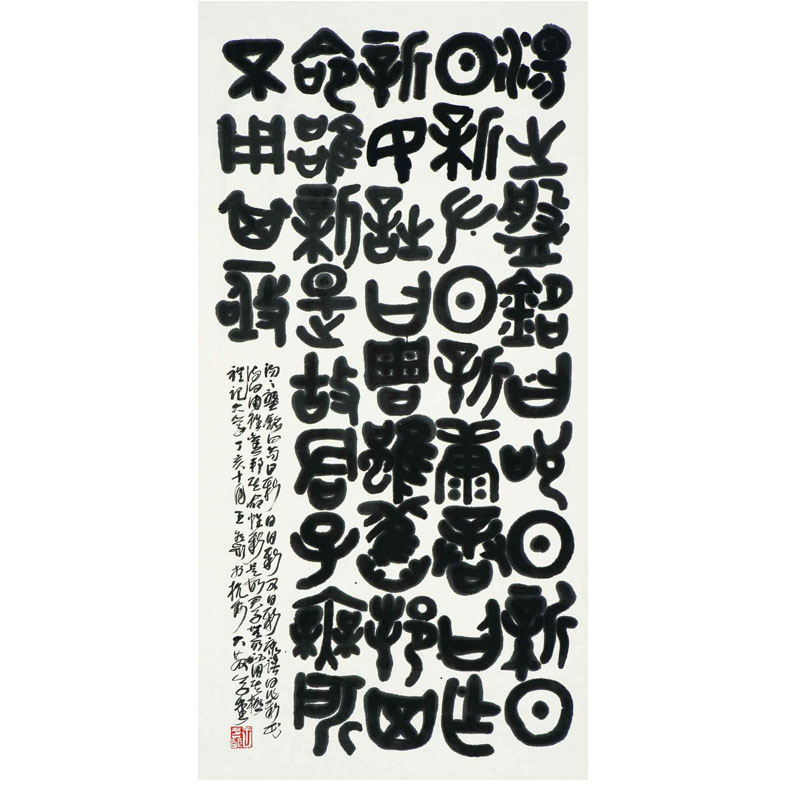 湯之盤銘曰苟日新日
日新又日新康誥曰作
新民詩曰周雖舊邦其
命惟新是故君子無所
不用其極
湯之盤銘曰苟日新日日新又日新康誥曰作新民
詩曰周雖舊邦其命惟新是故君子無所不用其極
禮記大學丁亥十月王冬齡於杭州大